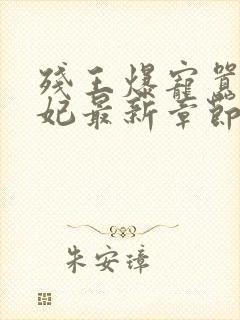 残王爆宠嚣
妃最新章節
朱安璋